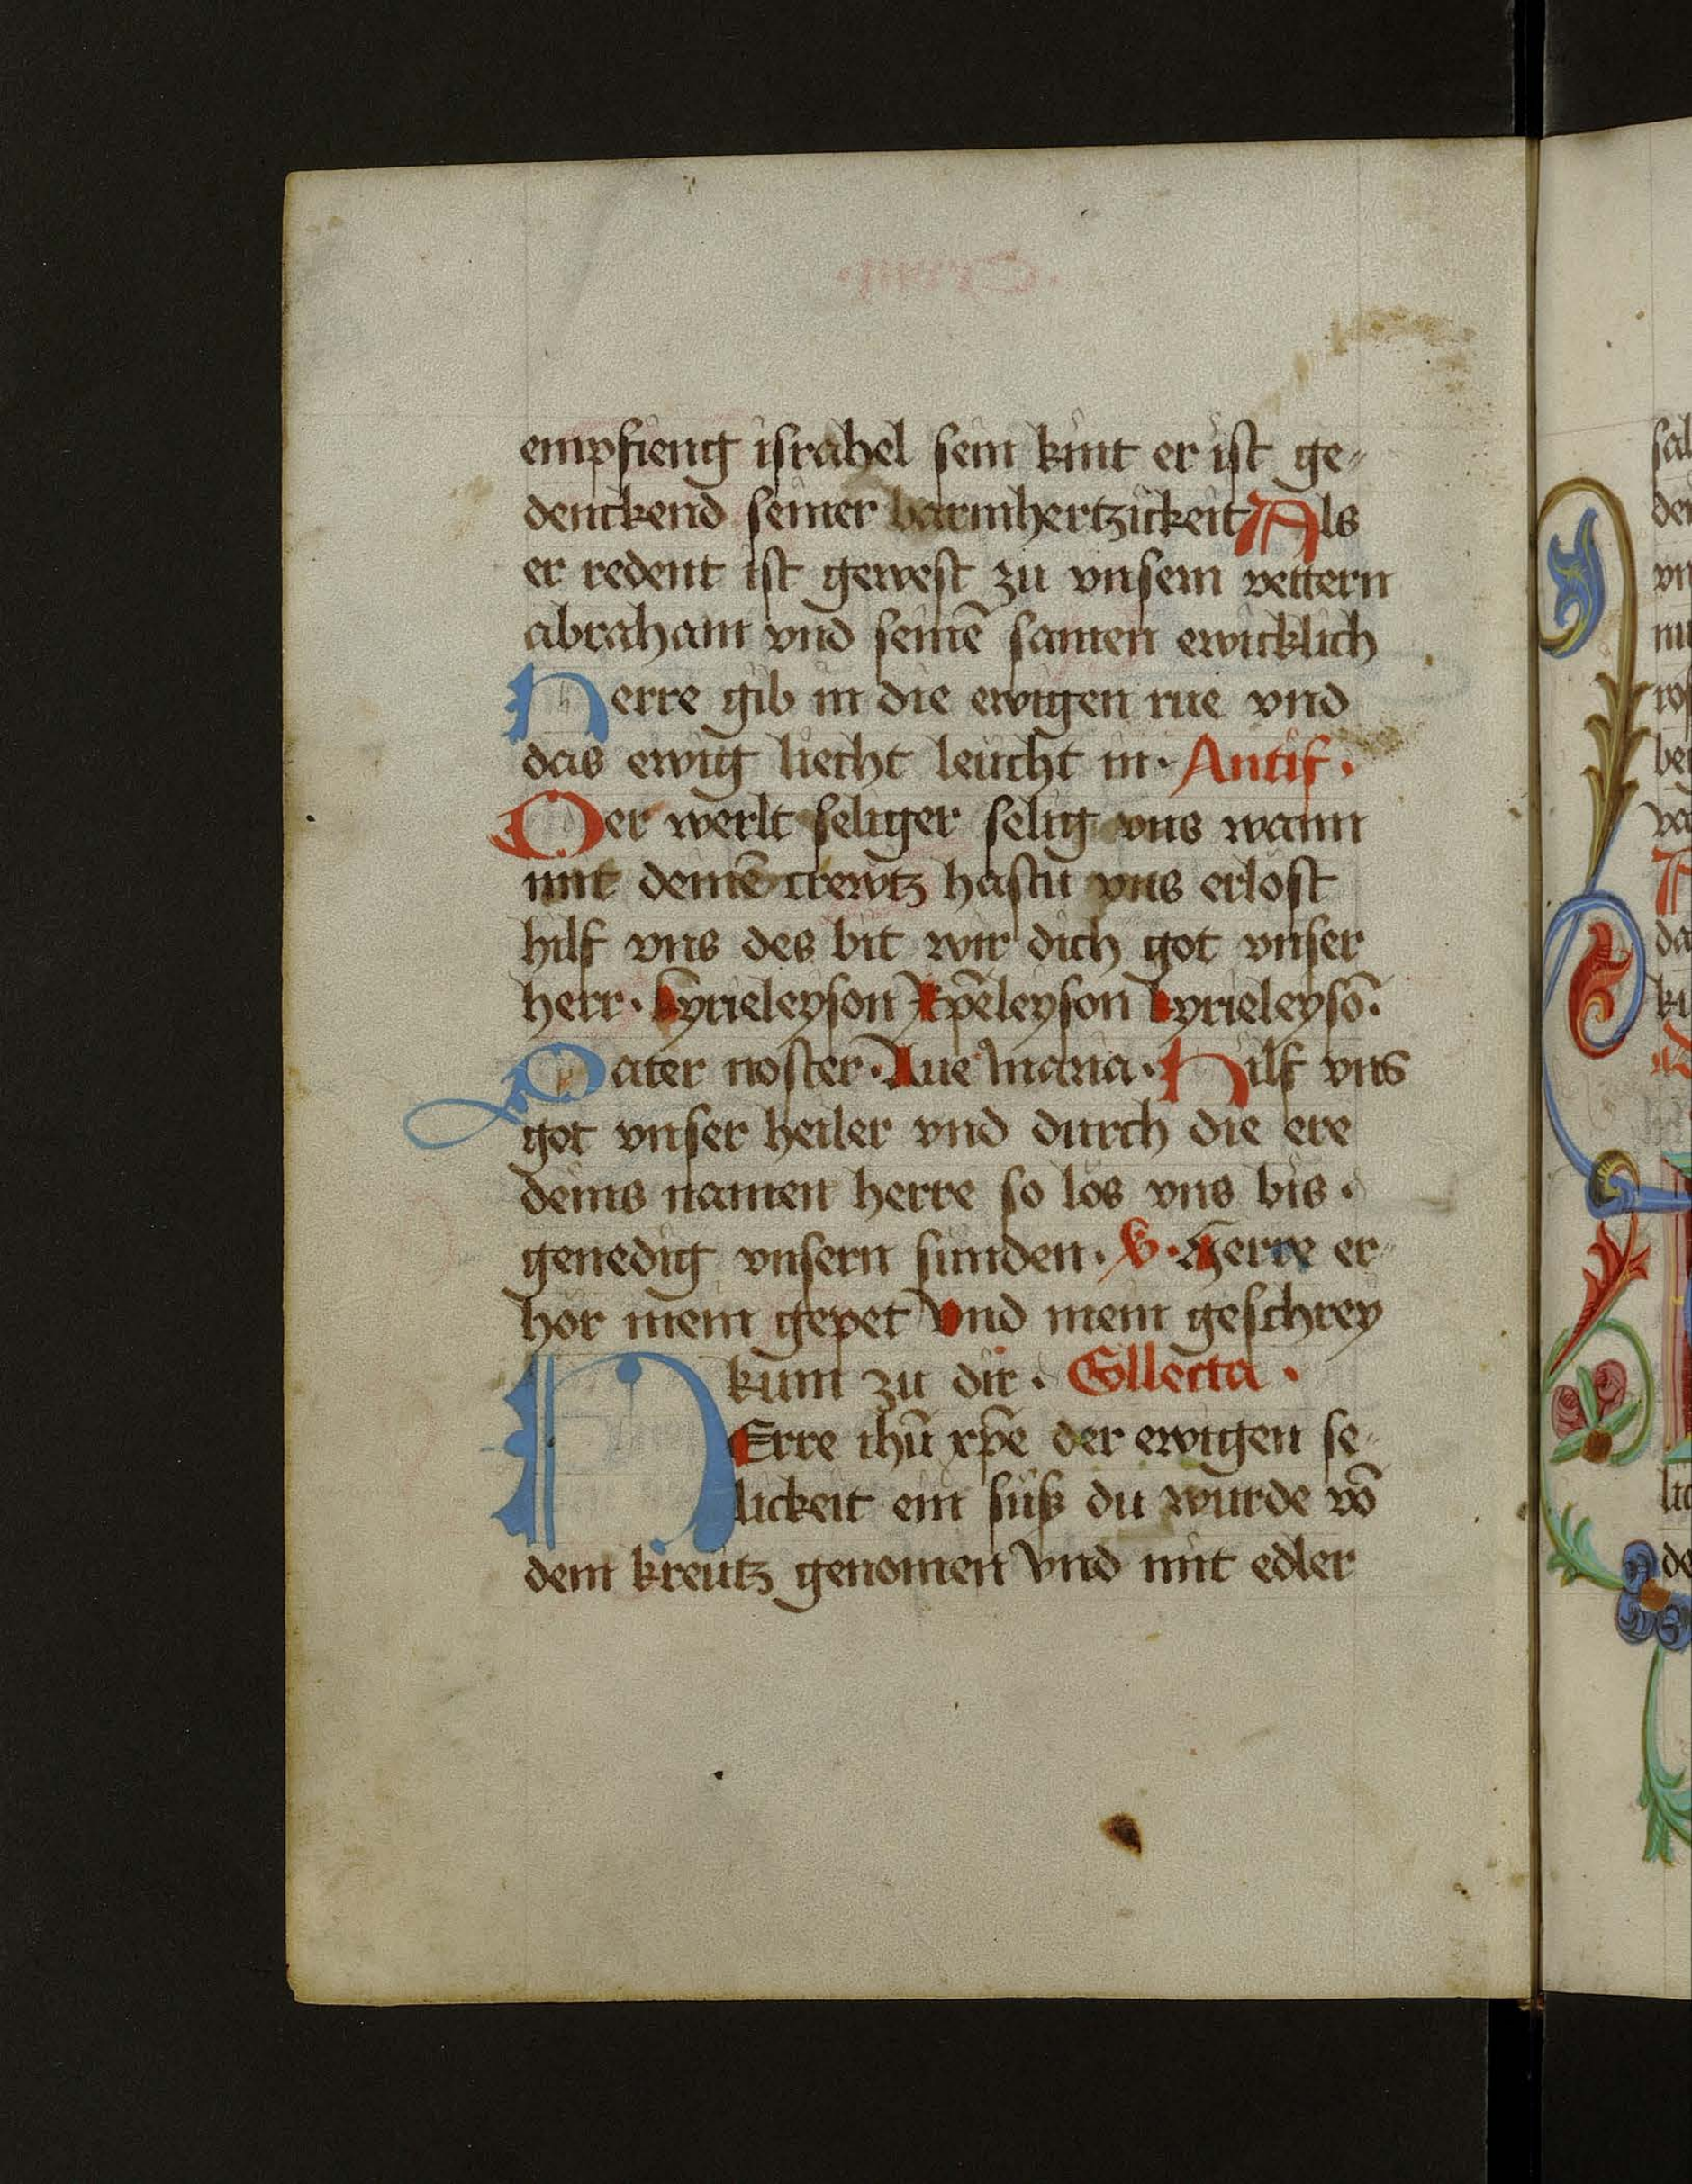 empfieng israhel sein kint er ist ge⸗
denckend seiner barmhertzickeit Als
er redent ist gewest zu vnsern vettern
abraham vnd seinē samen ewicklich
Herre gib in die ewigen rue vnd
das ewig liecht leucht in· Antif·
Der werlt seliger selig vns wann
mit deinē crewtz hastu vns erlost
hilf vns des bit wir dich got vnser
herr· kyrieleyson Xp̄eleyson kyrieleysō·
Pater noster· Aue maria· Hilf vns
got vnser heiler vnd durch die ere
deins namen herre so los vns bis·
genedig vnsern sunden· V· Herre er⸗
hör mein gepet Vnd mein geschrey
kum zu dir· Collecta·
HErre ihū xp̄e der ewigen se⸗
lickeit ein süß du wurde vō
dem kreutz genomen Vnd mit edler